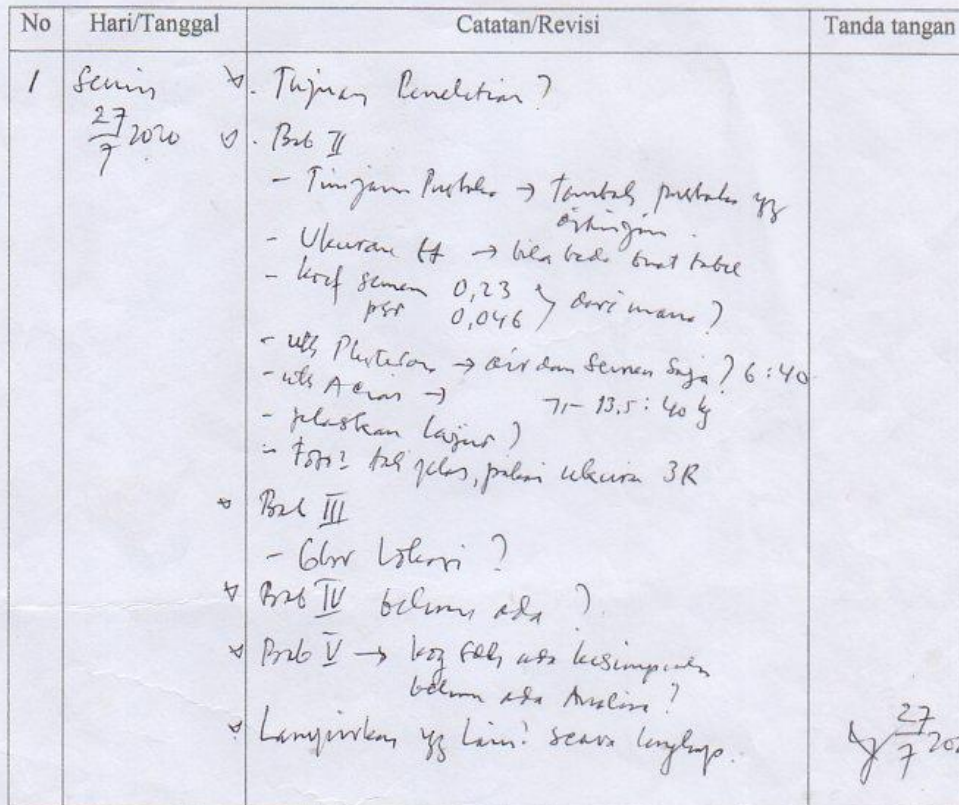 No Hari/Tanggal Catatan/Revisi Tanda tangan
1 Senin Tujuan Penelitian ?
27/7 2020 Bab II
- Tinjauan Pustaka → Tambah pustaka yg
- Ukuran → bila beda buat tabel
- koef semen 0,23
psr 0,046 } dari mana ?
- utk Plesteran → air dan semen saja ? 6 : 40
- utk Acian → 7,- 13,5 : 40 kg
- jelaskan lajur ?
- Foto² tdk jelas, pakai ukuran 3R
Bab III
- Gbr Lokasi ?
Bab IV belum ada ?
Bab V → kog sdh ada kesimpulan
belum ada Analisa ?
Lampirkan yg lain² secara lengkap.
27/7 202